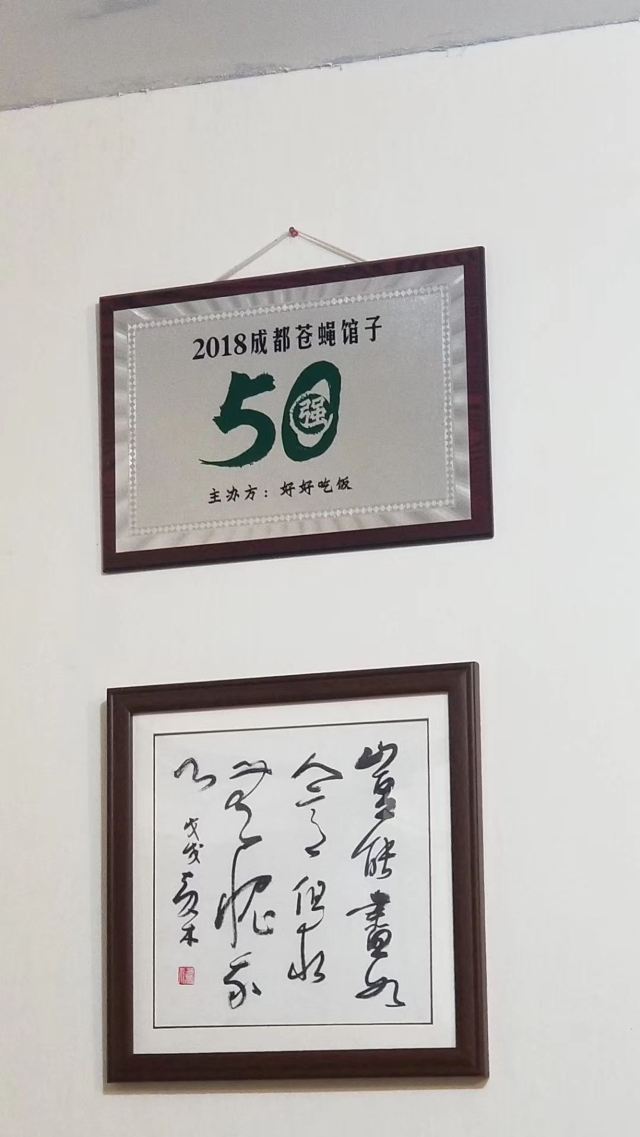 2018成都苍蝇馆子
50强
主办方：好好吃饭
豈能盡如
人意但求
無愧我
心
戊戌